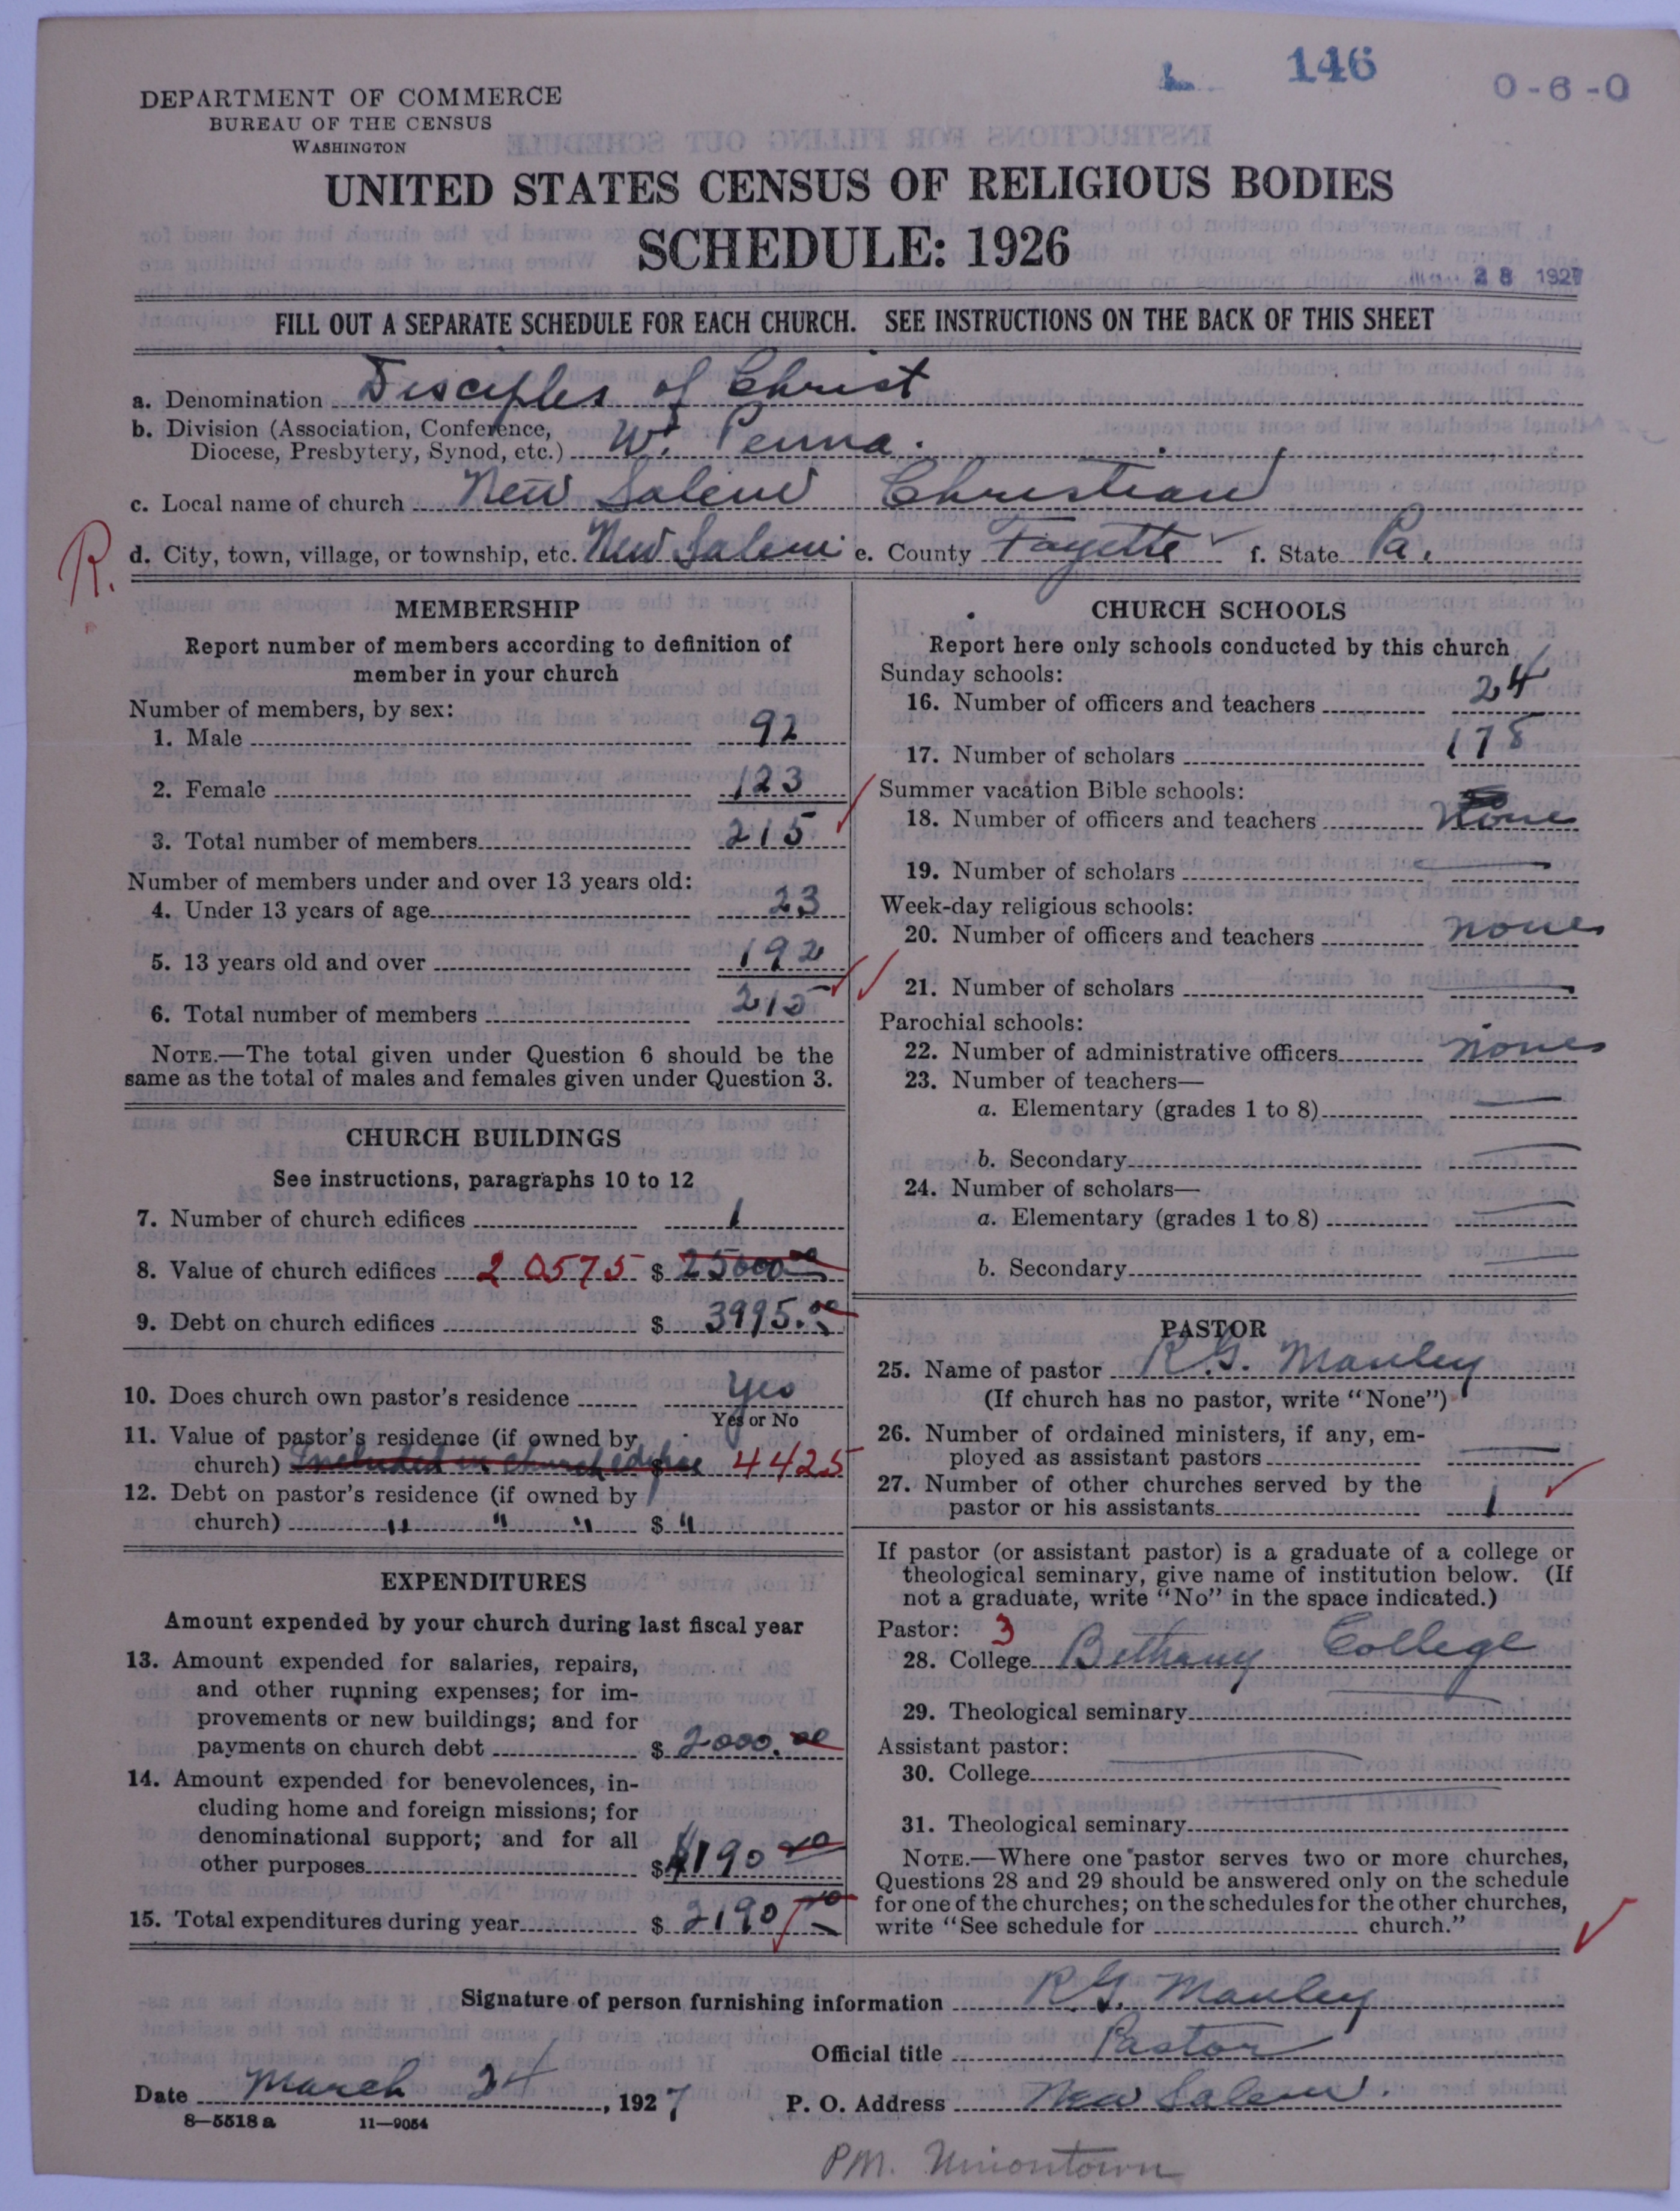 146
0-6-0
DEPARTMENT OF COMMERCE
BUREAU OF THE CENSUS
WASHINGTON
UNITED STATES CENSUS OF RELIGIOUS BODIES
SCHEDULE: 1926
28 1927
FILL OUT A SEPARATE SCHEDULE FOR EACH CHURCH. SEE INSTRUCTIONS ON THE BACK OF THIS SHEET
a. Denomination Disciples of Christ
b. Division (Association, Conference,
Diocese, Presbytery, Synod, etc.) W. Penna.
c. Local name of church New Salem Christian
R. d. City, town, village, or township, etc. New Salem e. County Fayette f. State Pa.
MEMBERSHIP
Report number of members according to definition of
member in your church
Number of members, by sex:
1. Male 92
2. Female 123
3. Total number of members 215
Number of members under and over 13 years old:
4. Under 13 years of age 23
5. 13 years old and over 192
6. Total number of members 215
NOTE.—The total given under Question 6 should be the
same as the total of males and females given under Question 3.
CHURCH BUILDINGS
See instructions, paragraphs 10 to 12
7. Number of church edifices 1
8. Value of church edifices 20575 $ 25000.00
9. Debt on church edifices $ 3995.00
10. Does church own pastor's residence Yes
Yes or No
11. Value of pastor's residence (if owned by
church) Included in church edifice $ 4425
12. Debt on pastor's residence (if owned by
church) " " " $ "
EXPENDITURES
Amount expended by your church during last fiscal year
13. Amount expended for salaries, repairs,
and other running expenses; for im-
provements or new buildings; and for
payments on church debt $ 2000.00
14. Amount expended for benevolences, in-
cluding home and foreign missions; for
denominational support; and for all
other purposes $ 190 00
15. Total expenditures during year $ 2190 00
CHURCH SCHOOLS
Report here only schools conducted by this church
Sunday schools:
16. Number of officers and teachers 24
17. Number of scholars 178
Summer vacation Bible schools:
18. Number of officers and teachers None
19. Number of scholars
Week-day religious schools:
20. Number of officers and teachers none
21. Number of scholars
Parochial schools:
22. Number of administrative officers none
23. Number of teachers—
a. Elementary (grades 1 to 8)
b. Secondary
24. Number of scholars—
a. Elementary (grades 1 to 8)
b. Secondary
PASTOR
25. Name of pastor R.G. Manley
(If church has no pastor, write "None")
26. Number of ordained ministers, if any, em-
ployed as assistant pastors
27. Number of other churches served by the
pastor or his assistants 1
If pastor (or assistant pastor) is a graduate of a college or
theological seminary, give name of institution below. (If
not a graduate, write "No" in the space indicated.)
Pastor: 3
28. College Bethany College
29. Theological seminary
Assistant pastor:
30. College
31. Theological seminary
NOTE.—Where one pastor serves two or more churches,
Questions 28 and 29 should be answered only on the schedule
for one of the churches; on the schedules for the other churches,
write "See schedule for church."
Signature of person furnishing information R.G. Manley
Official title Pastor
Date March 24, 1927 P. O. Address New Salem.
8-5518 a 11-9054
PM. Uniontown